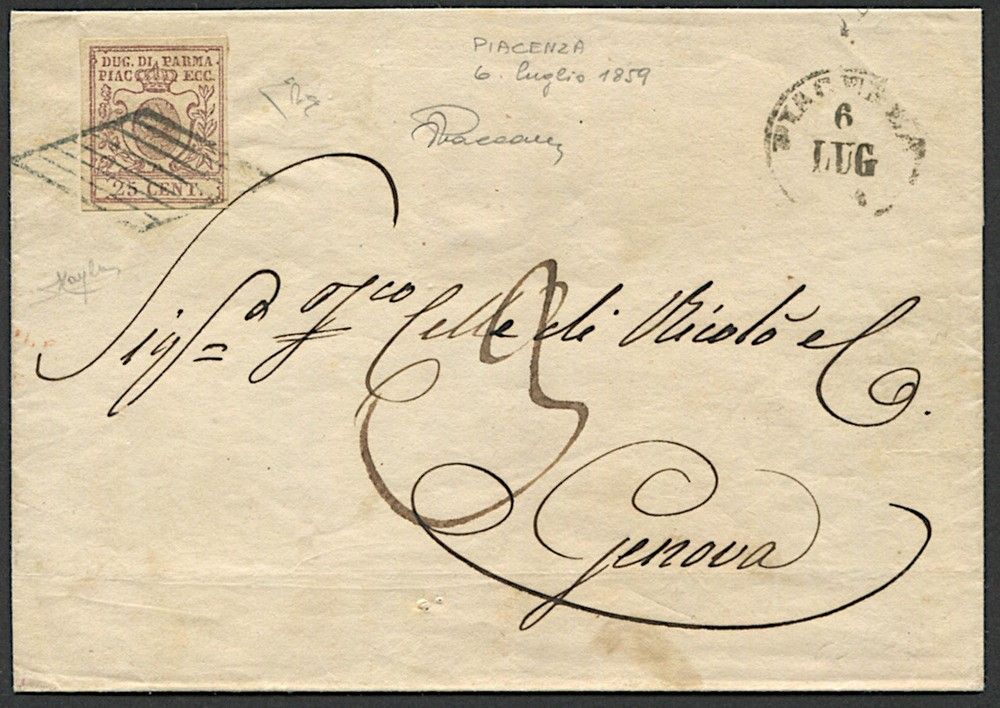 DUG. DI PARMA
PIAC ECC.
25 CENT.
PIACENZA
6. luglio 1859
PIACENZA
6
LUG
3
Sig.ra Fco Celle di Nicolò e C.
Genova